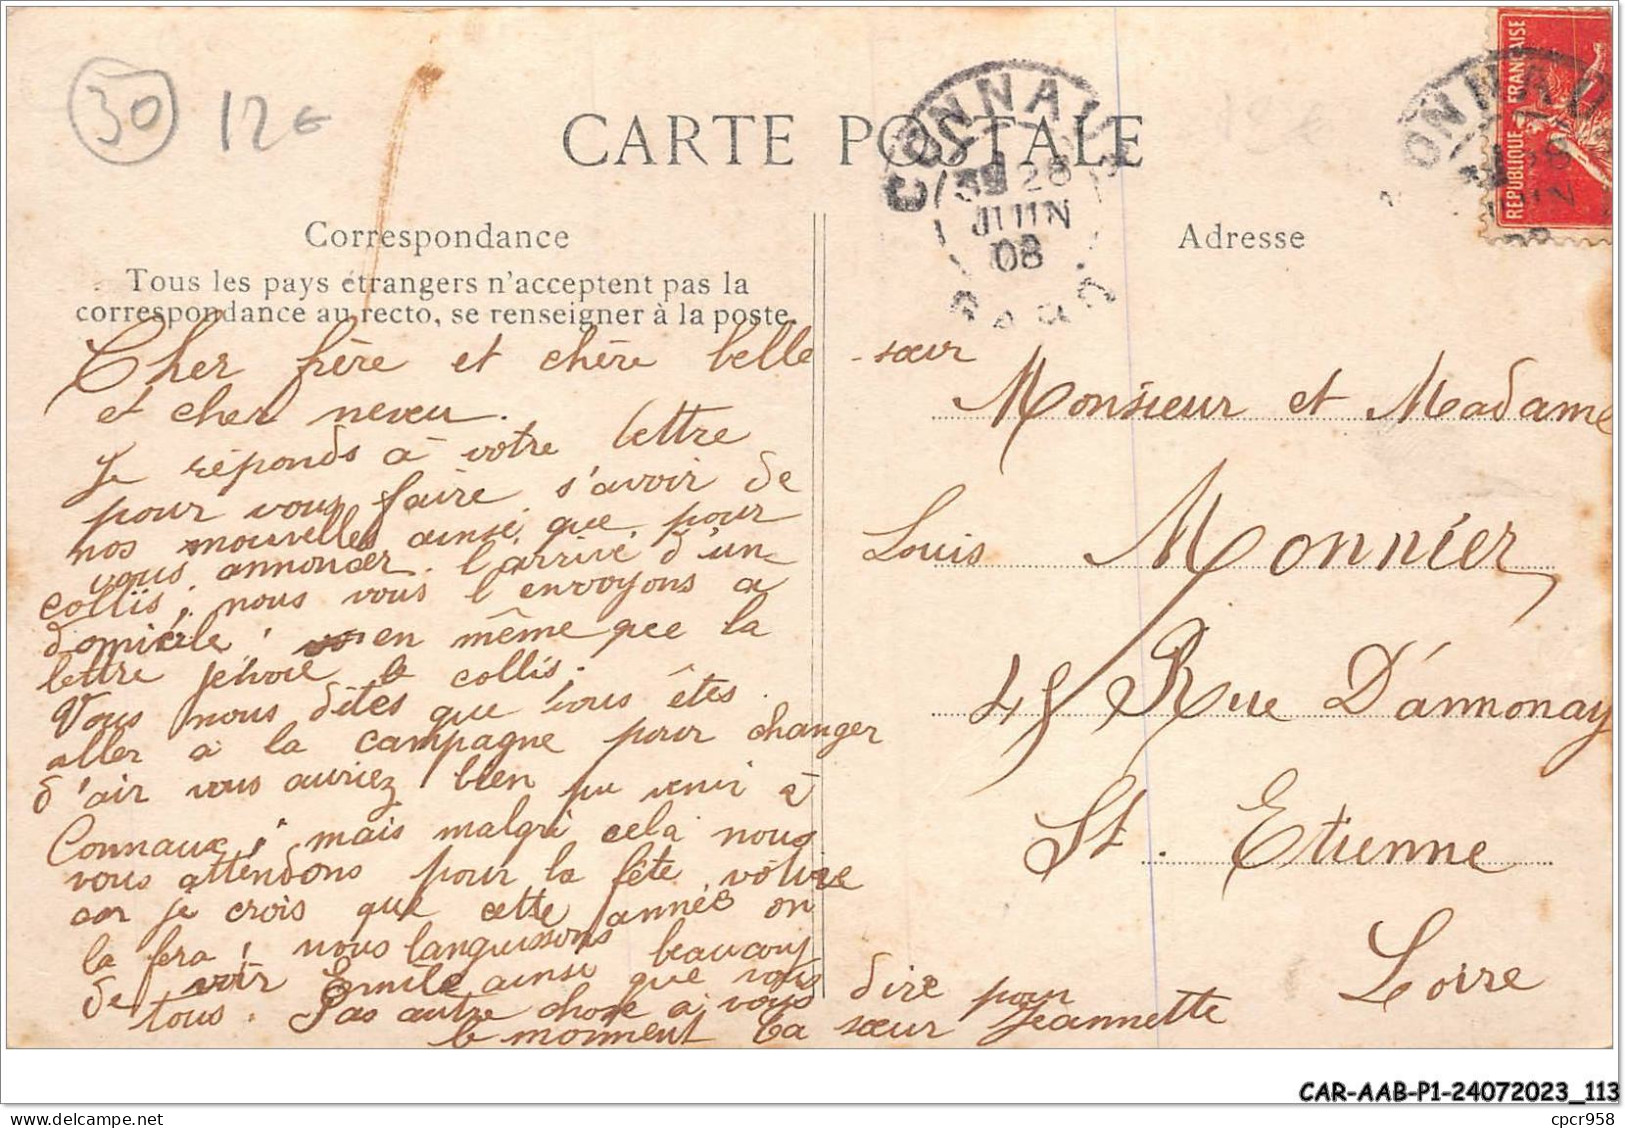 30
12€
CARTE POSTALE
CONNAUX
28
JUIN
08
GARD
REPUBLIQUE FRANÇAISE
Correspondance
Tous les pays étrangers n'acceptent pas la
correspondance au recto, se renseigner à la poste.
Cher frère et chère belle-sœur
et cher neveu.
Je réponds à votre lettre
pour vous faire s'avoir de
nos nouvelles ainsi que pour
vous annoncer l'arrivé d'un
collis; nous vous l'envoyons a
domicile! en même que la
lettre le collis.
Vous nous dîtes que vous êtes
aller a la campagne pour changer
d'air vous auriez bien pu venir à
Connaux, mais malgri cela nous
vous attendons pour la fête votive
car je crois que cette année on
la fera! nous languissons beaucoup
de voir Emile ainsi que vous
tous. Pas autre chose a vous dire pour
le moment ta sœur Jeannette
Adresse
Monsieur et Madame
Louis Monnier
45 Rue D'annonay
St. Etienne
Loire
CAR-AAB-P1-24072023_113
cpcr958